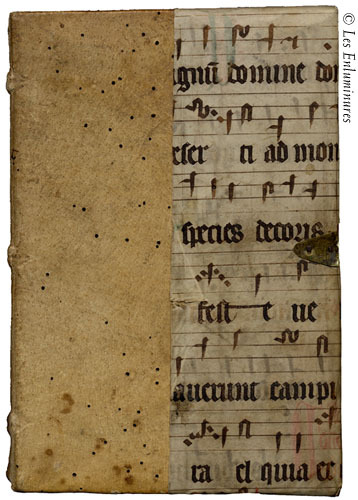 © Les Enluminures
agnū domine dom
eser ti ad mon
species decoris
fest e ue
auerunt campi
ra el quia ex